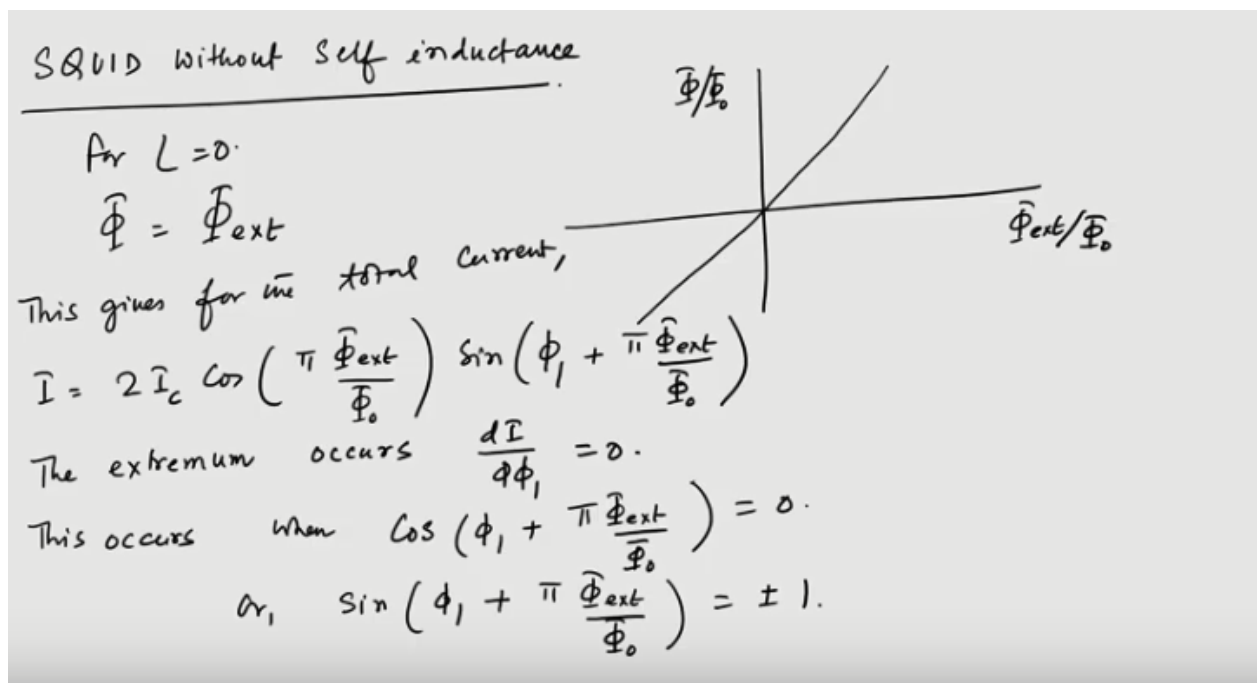 SQUID without Self inductance
Φ/Φ₀
for L = 0.
Φ = Φext
Φext/Φ₀
This gives for the total current,
I = 2 Ic Cos ( π Φext / Φ₀ ) Sin ( ϕ₁ + π Φext / Φ₀ )
The extremum occurs dI / dϕ₁ = 0.
This occurs when Cos ( ϕ₁ + π Φext / Φ₀ ) = 0.
Or, Sin ( ϕ₁ + π Φext / Φ₀ ) = ± 1.